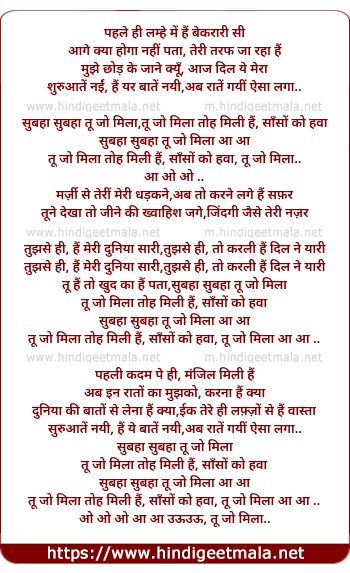 पहले ही लम्हे में हैं बेकरारी सी
आगे क्या होगा नहीं पता, तेरी तरफ जा रहा हैं
मुझे छोड़ के जाने क्यूँ, आज दिल ये मेरा
शुरुआतें नईं, हैं यर बातें नयी,अब रातें गयीं ऐसा लगा..
www.hindigeetmala.net m.hindigeetmala.net
सुबहा सुबहा तू जो मिला,तू जो मिला तोह मिली हैं, साँसों को हवा
सुबहा सुबहा तू जो मिला आ आ
तू जो मिला तोह मिली हैं, साँसों को हवा, तू जो मिला..
आ ओ ओ ..
मर्ज़ी से तेरीं मेरी धड़कने,अब तो करने लगे हैं सफ़र
तूने देखा तो जीने की ख्वाहिश जगे,जिंदगी जैसे तेरी नज़र
तुझसे ही, हैं मेरी दुनिया सारी,तुझसे ही, तो करली हैं दिल ने यारी
तुझसे ही, हैं मेरी दुनिया सारी,तुझसे ही, तो करली हैं दिल ने यारी
तू हैं तो खुद का हैं पता,सुबहा सुबहा तू जो मिला
तू जो मिला तोह मिली हैं, साँसों को हवा
सुबहा सुबहा तू जो मिला आ आ
तू जो मिला तोह मिली हैं, साँसों को हवा, तू जो मिला आ आ ..
www.hindigeetmala.net m.hindigeetmala.net
पहली कदम पे ही, मंजिल मिली हैं
अब इन रातों का मुझको, करना हैं क्या
दुनिया की बातों से लेना हैं क्या,ईक तेरे ही लफ़्ज़ों से हैं वास्ता
सुरुआतें नयी, हैं ये बातें नयी,अब रातें गयीं ऐसा लगा..
सुबहा सुबहा तू जो मिला
तू जो मिला तोह मिली हैं, साँसों को हवा
सुबहा सुबहा तू जो मिला आ आ
तू जो मिला तोह मिली हैं, साँसों को हवा, तू जो मिला आ आ ..
ओ ओ ओ आ आ उऊउऊ, तू जो मिला..
https://www.hindigeetmala.net